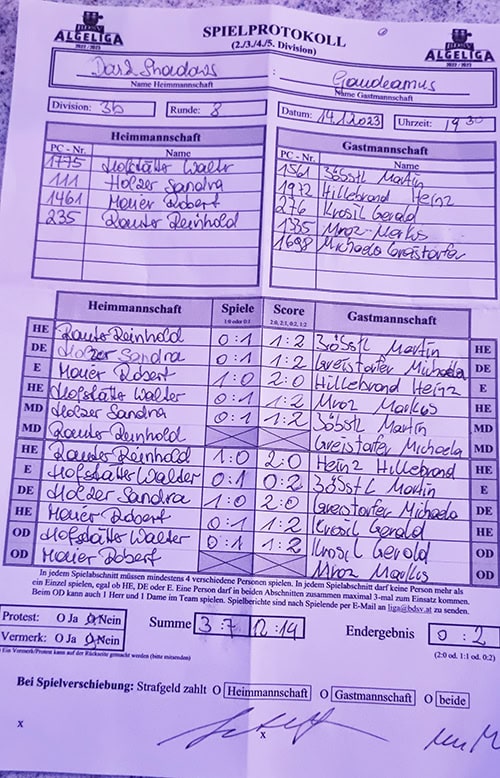 ALGELIGA
2022 / 2023
SPIELPROTOKOLL
(2./3./4./5. Division)
ALGELIGA
2022 / 2023
Dark Shadows : Gaudeamus
Name Heimmannschaft Name Gastmannschaft
Division: 3b Runde: 8 Datum: 14.1.2023 Uhrzeit: 19 30
Heimmannschaft Gastmannschaft
PC - Nr. Name PC - Nr. Name
1775 Hofstätter Walter 1561 Martin
111 Holzer Sandra 1972 Hillebrand Heinz
1461 Mauer Robert 276 Krosil Gerald
235 Rauter Reinhold 1335 Mroz Markus
1698 Michaela Greistorfer
Heimmannschaft Spiele Score Gastmannschaft
1:0 oder 0:1 2:0, 2:1, 0:2, 1:2
HE Rauter Reinhold 0:1 1:2 Martin HE
DE Holzer Sandra 0:1 1:2 Greistorfer Michaela DE
E Mauer Robert 1:0 2:0 Hillebrand Heinz E
HE Hofstätter Walter 0:1 1:2 Mroz Markus HE
MD Holzer Sandra 0:1 1:2 Martin MD
MD Rauter Reinhold Greistorfer Michaela MD
HE Rauter Reinhold 1:0 2:0 Heinz Hillebrand HE
E Hofstätter Walter 0:1 0:2 Martin E
DE Holzer Sandra 1:0 2:0 Greistorfer Michaela DE
HE Mauer Robert 0:1 1:2 Krosil Gerald HE
OD Hofstätter Walter 0:1 1:2 Krosil Gerald OD
OD Mauer Robert Mroz Markus OD
In jedem Spielabschnitt müssen mindestens 4 verschiedene Personen spielen. In jedem Spielabschnitt darf keine Person mehr als
ein Einzel spielen, egal ob HE, DE oder E. Eine Person darf in beiden Abschnitten zusammen maximal 3-mal zum Einsatz kommen.
Beim OD kann auch 1 Herr und 1 Dame im Team spielen. Spielberichte sind nach Spielende per E-Mail an liga@bdsv.at zu senden.
Protest: O Ja O Nein
Summe 3 : 7 12 : 14 Endergebnis 0 : 2
Vermerk: O Ja O Nein
(2:0 od. 1:1 od. 0:2)
( Ein Vermerk/Protest kann auf der Rückseite gemacht werden (bitte mitsenden)
Bei Spielverschiebung: Strafgeld zahlt O Heimmannschaft O Gastmannschaft O beide
x x